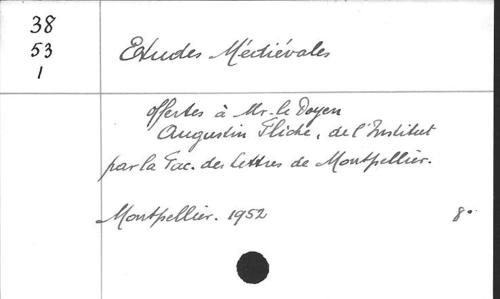 38
53
1
Etudes Médiévales
offertes à Mr. le Doyen
Augustin Fliche, de l'Institut
par la Fac. des lettres de Montpellier.
Montpellier. 1952
8°